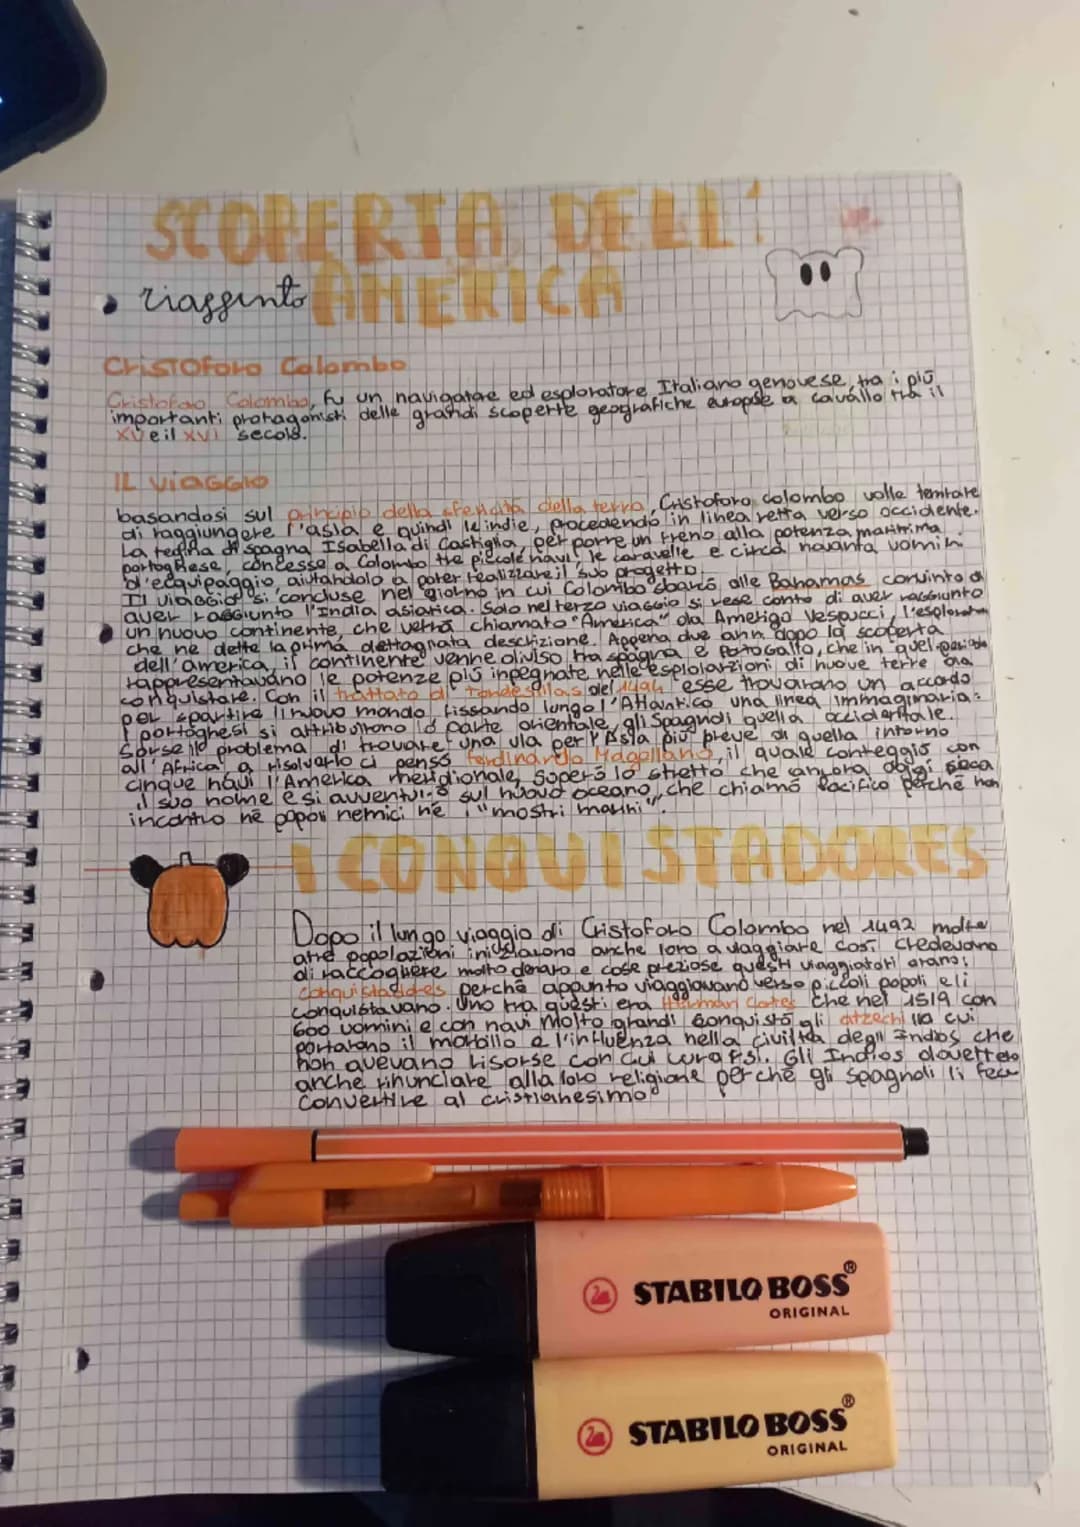 SCOPERTA DELL'
AMERICA
• riassunto
Cristoforo Colombo
Cristoforo Colombo, fu un navigatore ed esploratore Italiano genovese, tra i più
importanti protagonisti delle grandi scoperte geografiche europee a cavallo tra il
XV e il XVI secolo.
IL VIAGGIO
basandosi sul principio della sfericità della terra, Cristoforo colombo volle tentare
di raggiungere l'asia e quindi le indie, procedendo in linea retta verso occidente.
La regina di spagna Isabella di Castiglia, per porre un freno alla potenza marittima
portoghese, concesse a Colombo tre piccole navi: le caravelle e circa novanta uomini
d'equipaggio, aiutandolo a poter realizzare il suo progetto.
Il viaggio si concluse nel giorno in cui Colombo sbarcò alle Bahamas convinto di
aver raggiunto l'India asiatica. Solo nel terzo viaggio si rese conto di aver raggiunto
un nuovo continente, che verrà chiamato "America" da Amerigo Vespucci, l'esploratore
che ne dette la prima dettagnata descrizione. Appena due anni dopo la scoperta
dell'america, il continente venne diviso tra spagna e Portogallo, che in quel periodo
rappresentavano le potenze più inpegnate nelle esplolarzioni di nuove terre da
conquistare. Con il trattato di Tordesillas del 1494 esse trovarono un accordo
per spartire il nuovo mondo fissando lungo l'Atlantico una linea immaginaria:
I portoghesi si attribuirono la parte orientale, gli Spagnoli quella occidentale.
Sorse il problema di trovare una via per l'Asia più breve di quella intorno
all'Africa a risolverlo ci pensò Ferdinando Magellano, il quale conteggiò con
cinque navi l'America meridionale, superò lo stretto che ancora oggi
il suo nome e si avventurò sul nuovo oceano, che chiamò Pacifico perchè non
incontrò nè popoli nemici nè i "mostri marini".
I CONQUISTADORES
Dopo il lungo viaggio di Cristoforo Colombo nel 1492 molte
altre popolazioni iniziarono anche loro a viaggiare così credevano
di raccogliere molto denaro e cose preziose questi viaggiatori erano i
conquistadores perchè appunto viaggiavano verso piccoli popoli e li
conquistavano. Uno tra questi era Hernan Cortes che nel 1519 con
600 uomini e con navi molto grandi conquistò gli atzechi cui
portarono il morbillo e l'influenza nella civiltà degli Indios che
non avevano risorse con cui curarsi. Gli Indios dovettero
anche rinunciare alla loro religione perchè gli spagnoli li
convertire al cristianesimo
STABILO BOSS®
ORIGINAL
STABILO BOSS®
ORIGINAL